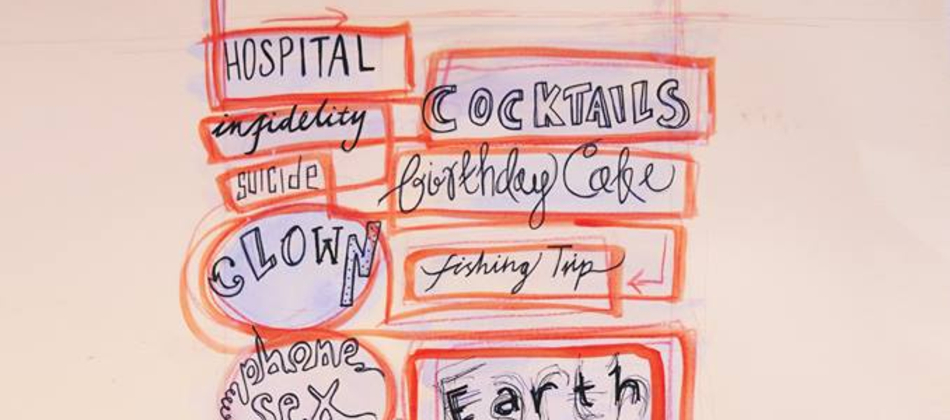 HOSPITAL
COCKTAILS
infidelity
suicide
birthday Cake
CLOWN
fishing Trip
phone
sex
Earth